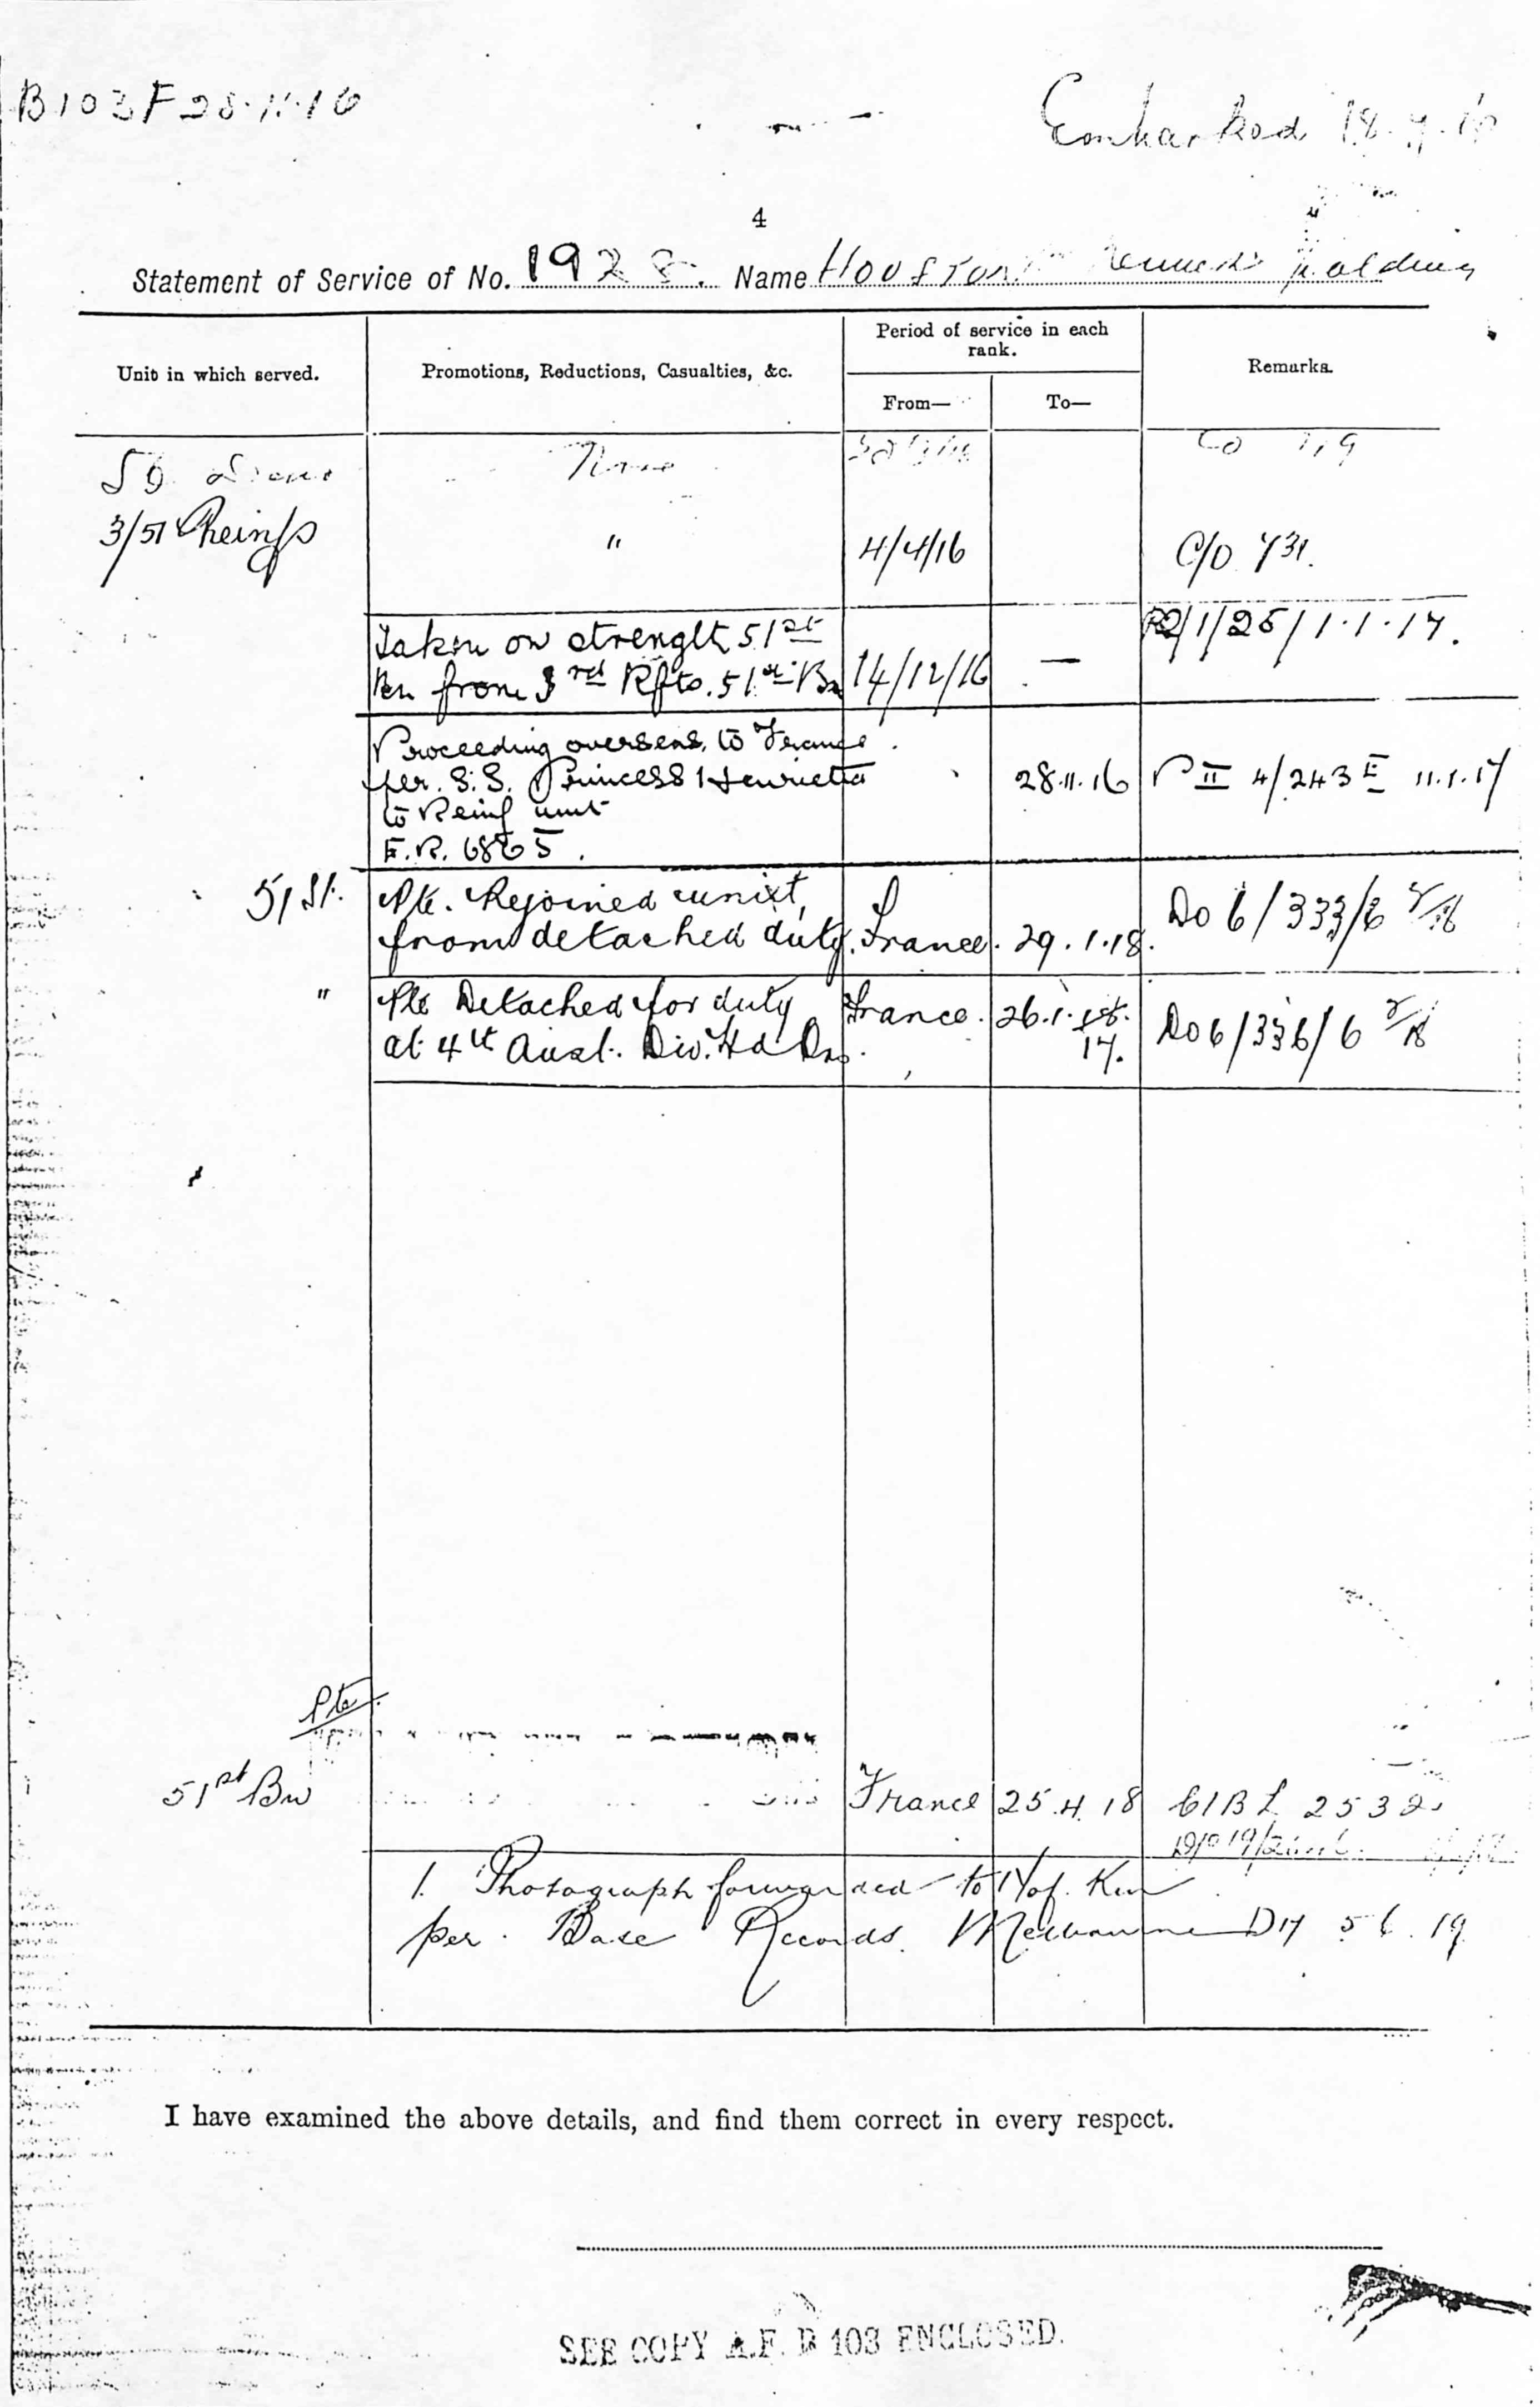 B103F 28.11.16
Embarked 18.7.16
4
Statement of Service of No. 1928. Name Houston
Unit in which served.
Promotions, Reductions, Casualties, &c.
Period of service in each rank.
Remarks.
From—
To—
None
3/51 Reinfs
"
4/4/16
C/O 731.
Taken on strength 51st
Bn from 3rd Rfts. 51st Bn
14/12/16
—
R2/1/25/1.1.17.
Proceeding overseas to France
per. S.S. Princess Henrietta
to Reinf unit
E.R. 6865.
28.11.16
P II 4/243E 11.1.17
51st.
Pte. Rejoined unit,
from detached duty.
France.
29.1.18.
Do 6/333/6
"
Pte Detached for duty
at 4th Aust. Div. Hd Qrs.
France.
26.1.18.
17.
Do 6/336/6
Pte
51st Bn
France
25.4.18
2532
1. Photograph forwarded to N of. Kin
per. Base Records. Melbourne 19
I have examined the above details, and find them correct in every respect.
SEE COPY A.F. B 103 ENCLOSED.